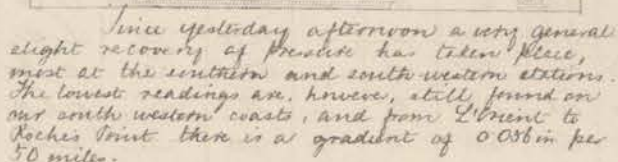 Since yesterday afternoon a very general
slight recovery of pressure has taken place,
most at the southern and south western stations.
The lowest readings are, however, still found on
our south western coasts, and from L'Orient to
Roches Point there is a gradient of 0.036 in per
50 miles.